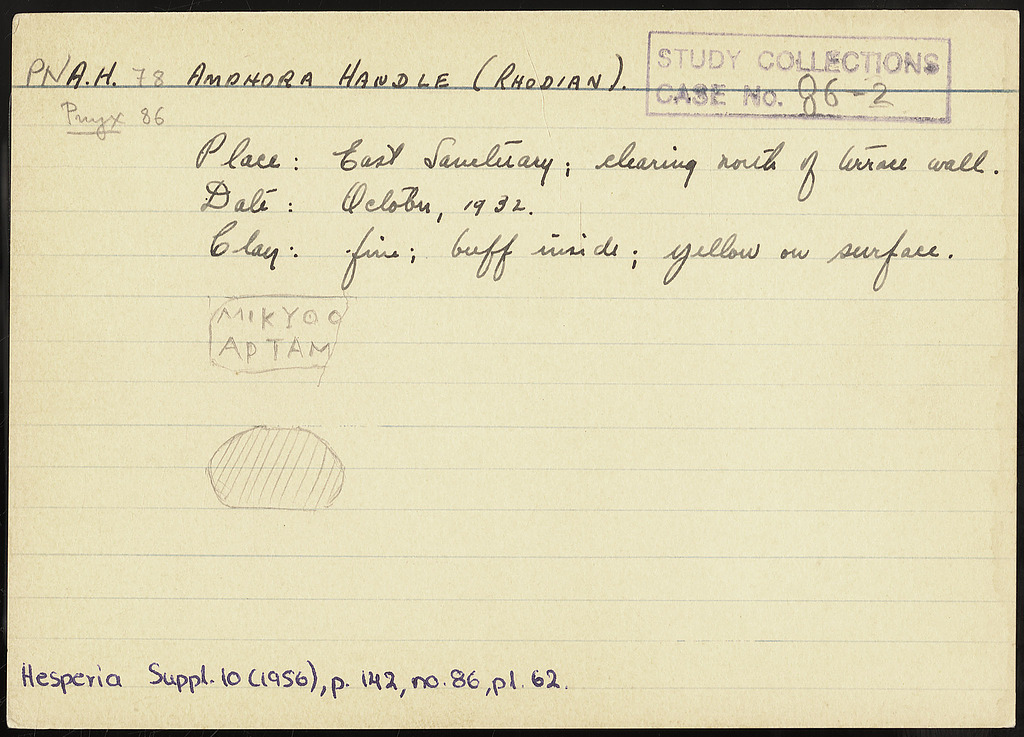 PN A.H. 78 AMPHORA HANDLE (RHODIAN).
STUDY COLLECTIONS
CASE No. 86-2
Pnyx 86
Place: East Sanctuary; clearing north of terrace wall.
Date: October, 1932.
Clay: fine; buff inside; yellow on surface.
ΜΙΚΥΘΟ
ΑΡΤΑΜ
Hesperia Suppl. 10 (1956), p. 142, no. 86, pl. 62.